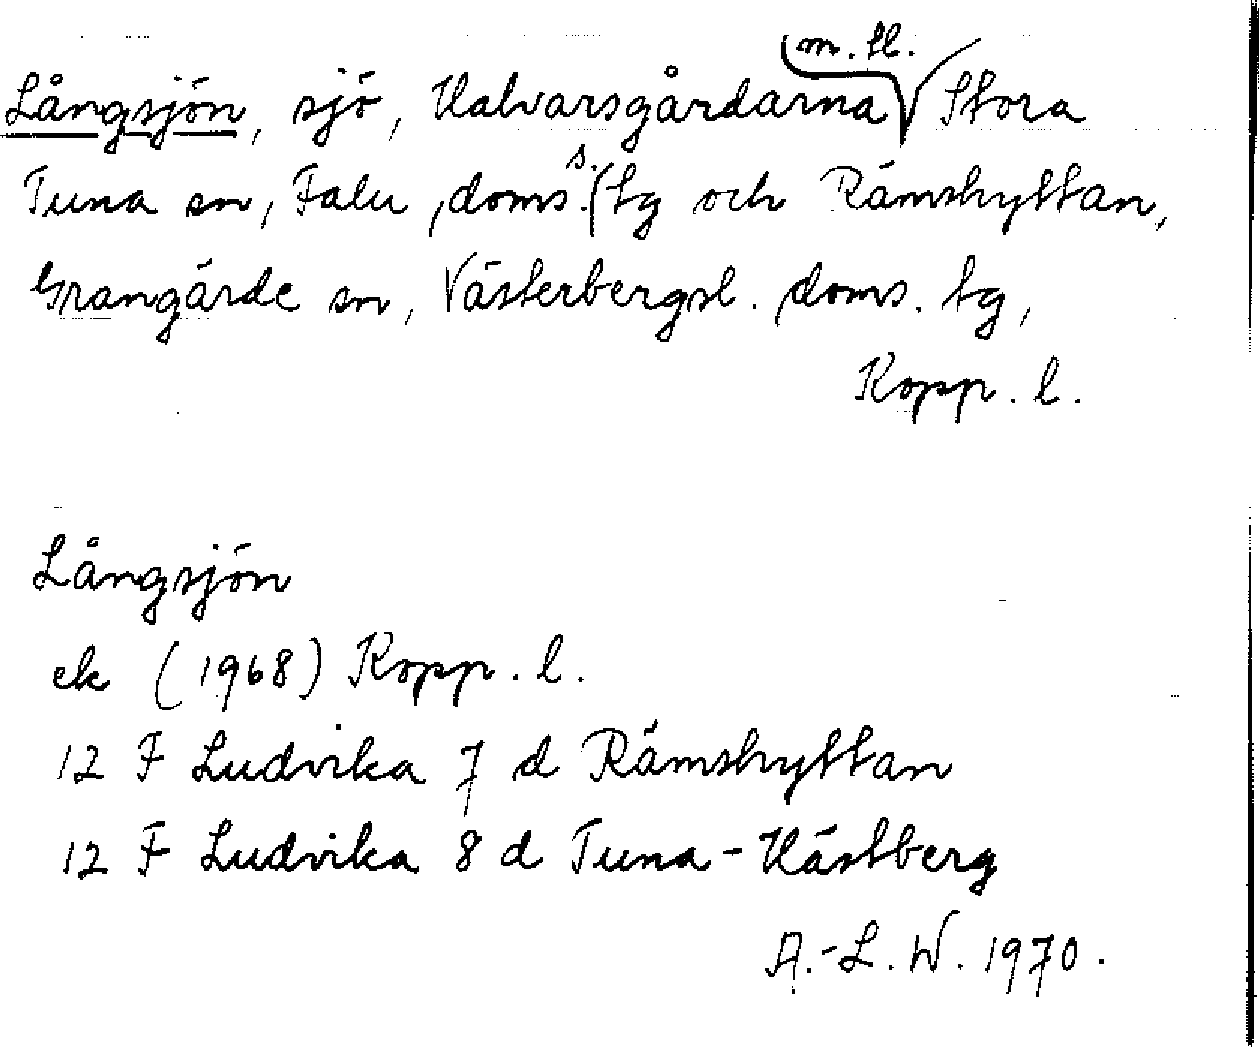 Långsjön, sjö, Halvarsgårdarna m.fl. Stora
Tuna sn, Falu, doms.s. tg och Rämshyttan,
Grangärde sn, Västerbergsl. doms. tg,
Kopp. l.
Långsjön
ek (1968) Kopp. l.
12 F Ludvika 7 d Rämshyttan
12 F Ludvika 8 d Tuna-Hästberg
A.-L. W. 1970.